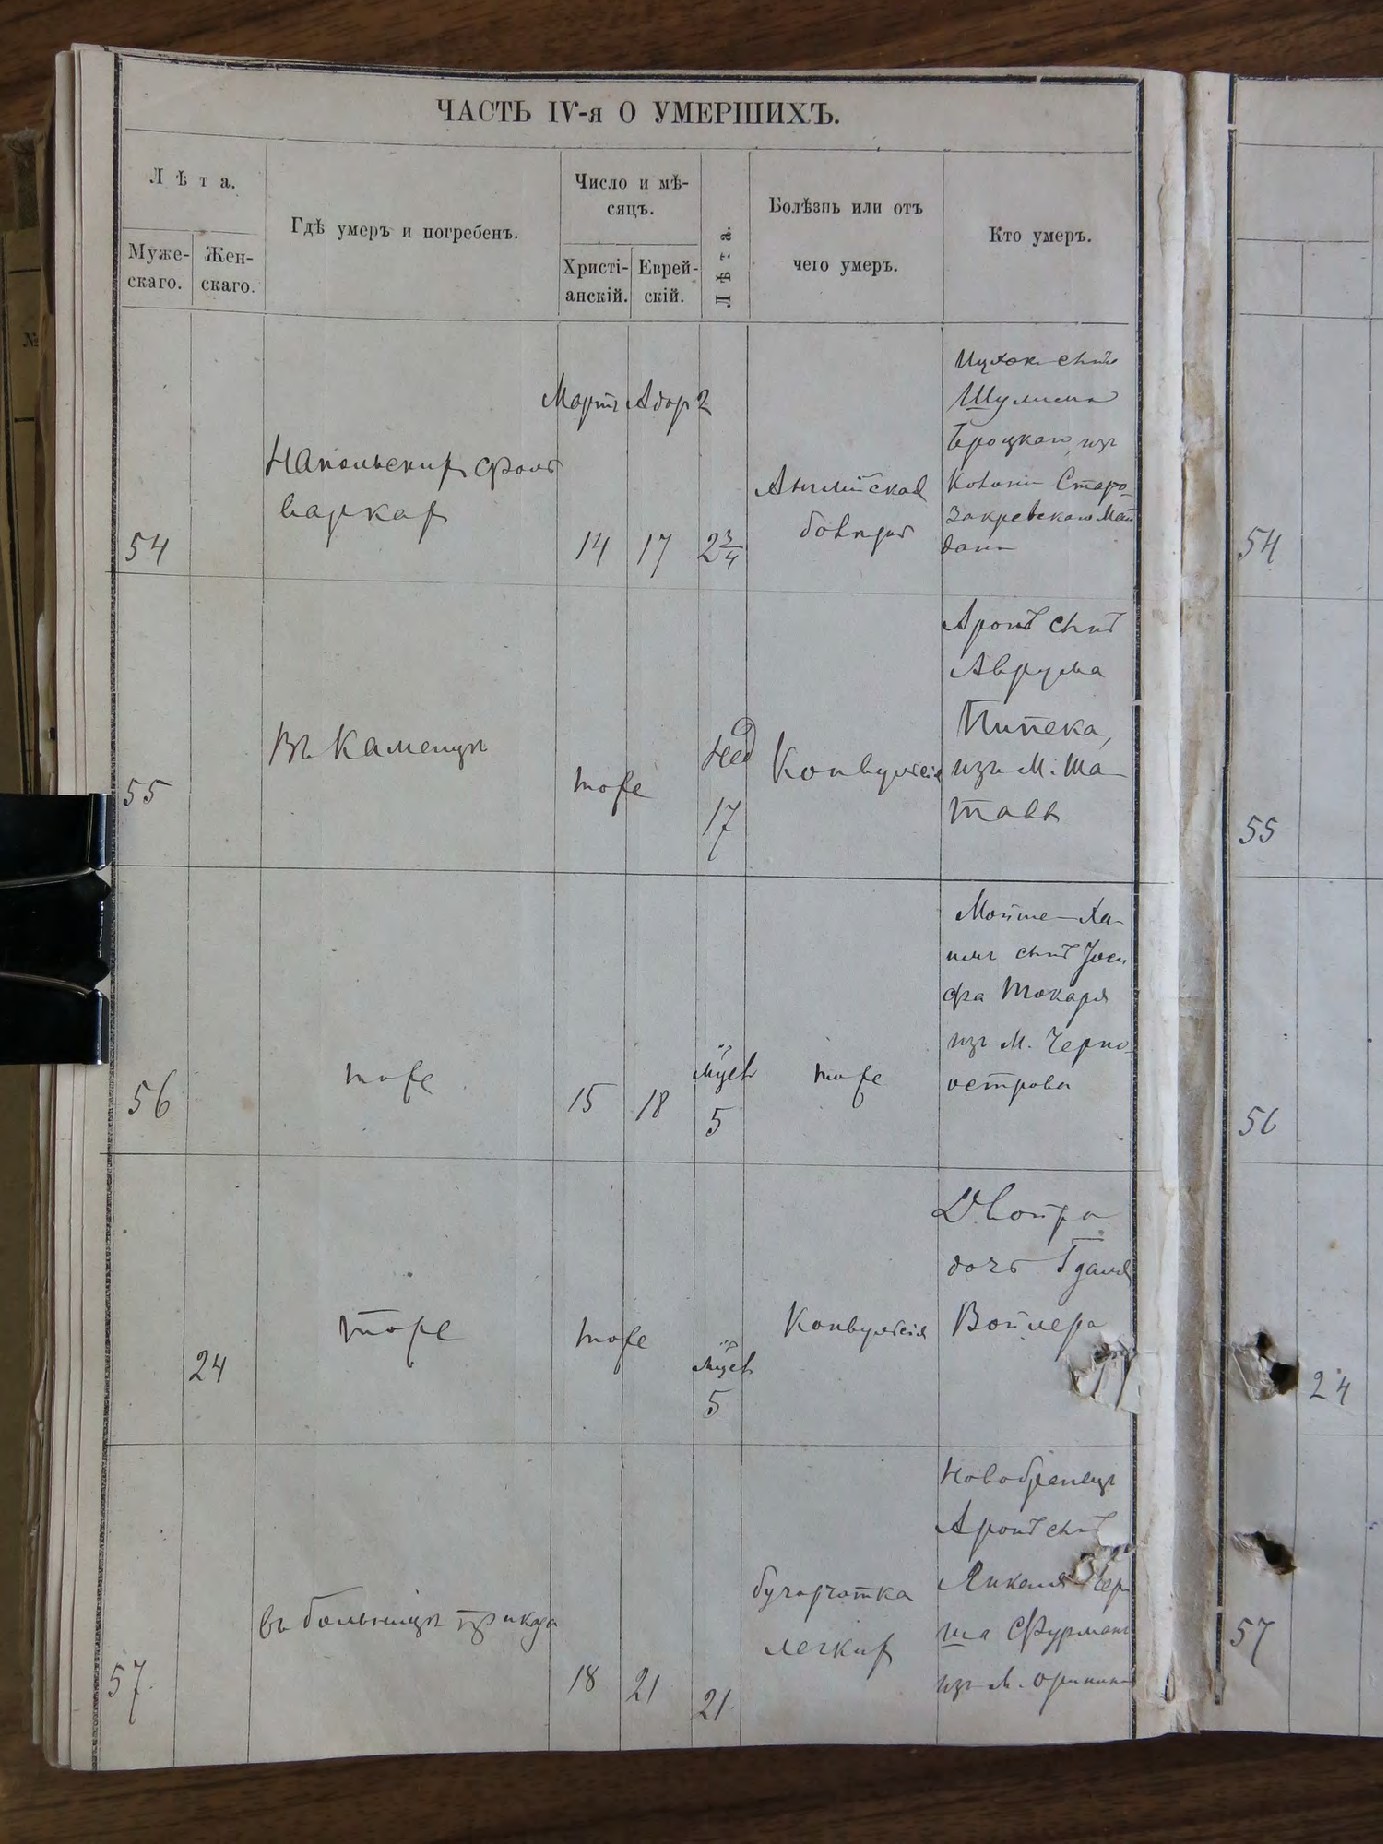 ЧАСТЬ IV-я О УМЕРШИХЪ.
Лѣта.
Муже-
скаго.
Жен-
скаго.
Гдѣ умеръ и погребенъ.
Число и мѣ-
сяцъ.
Христі-
анскій.
Еврей-
скій.
Лѣта.
Болѣзнь или отъ
чего умеръ.
Кто умеръ.
№
54
фоль
варках
Мартъ Адар 2
14 17 2 3/4
Английская
болезнь
Ицхок сынъ
Шулима
Броцкаго, изъ
Колонiи Старо-
закревскаго Май
дана
54
55
Въ Каменцѣ
тоже
нед
17
Конвульсiя
Аронъ сынъ
Аврума
Пипека,
изъ М. Ша-
тавы
55
56
тоже
15 18
5
тоже
Мойше-Ха-
имъ сынъ Iоси
фа Токаря
изъ М. Черно-
острова
56
24
тоже
тоже
5
Конвульсiя
Двойра
дочь Гдаля
Войлера
24
57
въ больницѣ приказа
18 21 21
бугорчатка
легких
Новобранецъ
Аронъ сынъ
Янкеля Гер-
ша Фурманъ
изъ М. Оринина
57